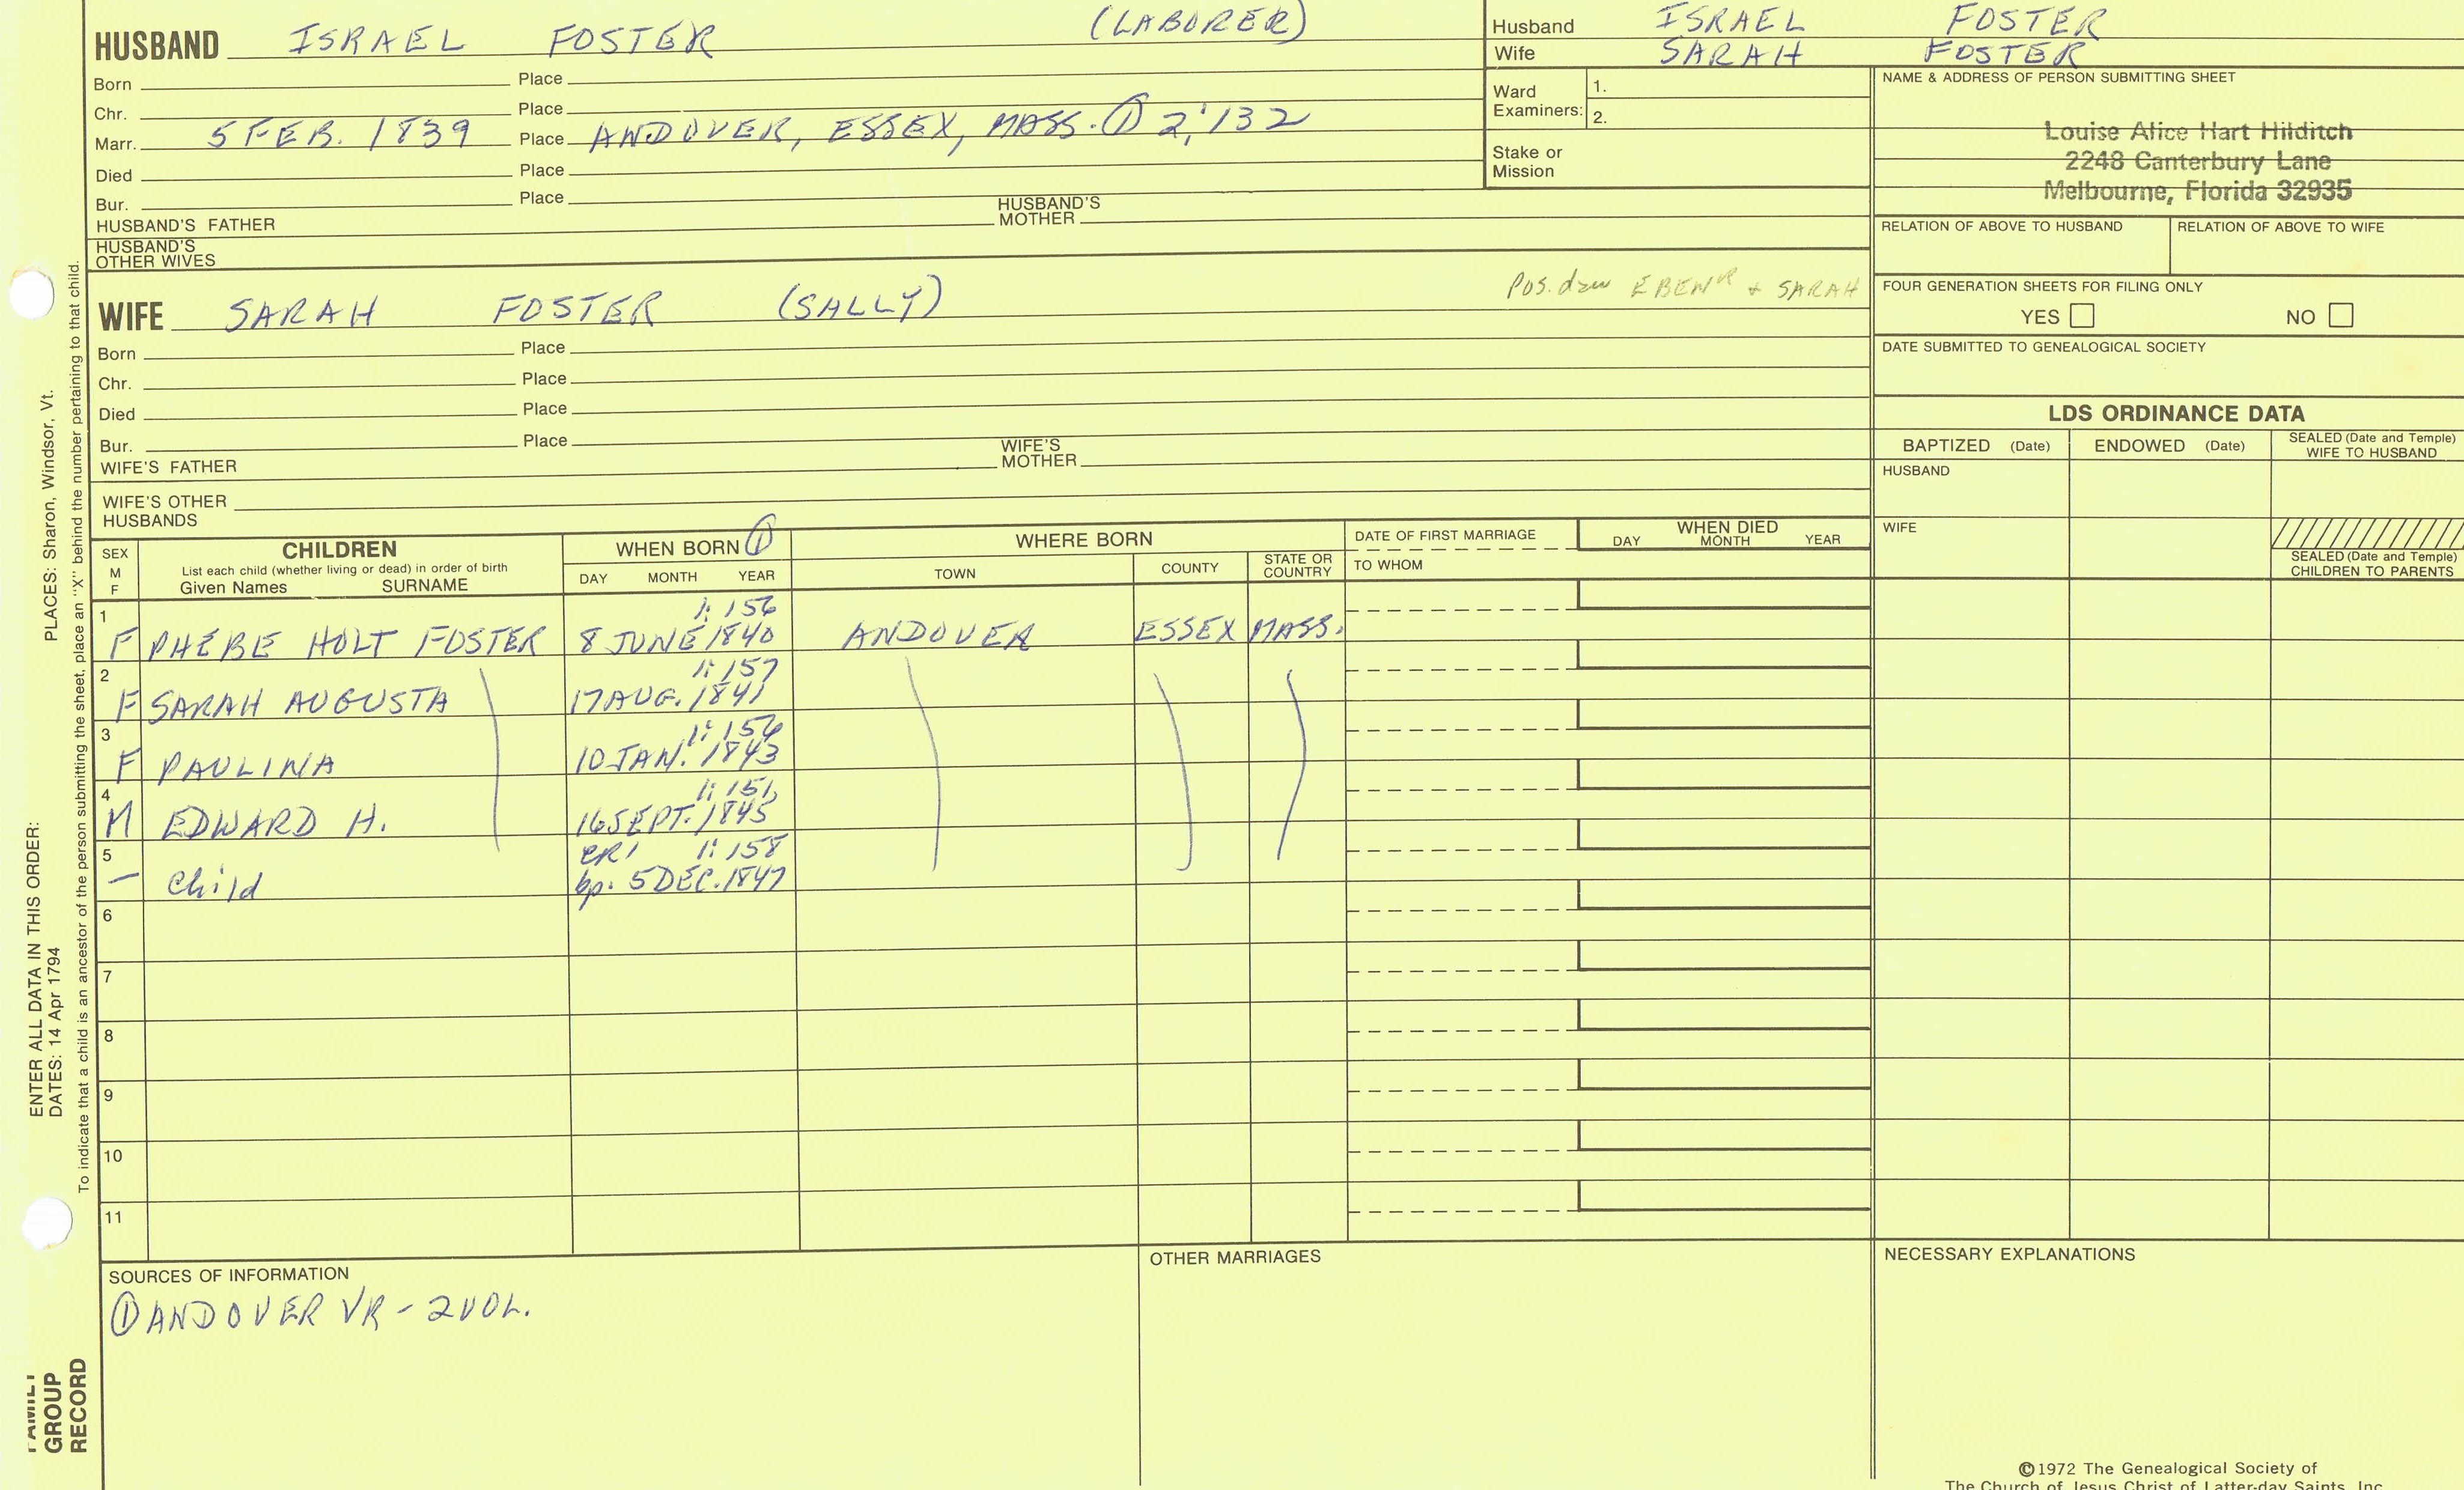 HUSBAND ISRAEL FOSTER (LABORER)
Born Place
Chr. Place
Marr. 5 FEB. 1839 Place ANDOVER, ESSEX, MASS. ① 2:132
Died Place
Bur. Place
HUSBAND'S FATHER HUSBAND'S MOTHER
HUSBAND'S
OTHER WIVES
WIFE SARAH FOSTER (SALLY) Pos. dau EBENR + SARAH
Born Place
Chr. Place
Died Place
Bur. Place
WIFE'S FATHER WIFE'S MOTHER
WIFE'S OTHER
HUSBANDS
Husband ISRAEL FOSTER
Wife SARAH FOSTER
Ward
Examiners:
1.
2.
Stake or
Mission
NAME & ADDRESS OF PERSON SUBMITTING SHEET
Louise Alice Hart Hilditch
2248 Canterbury Lane
Melbourne, Florida 32935
RELATION OF ABOVE TO HUSBAND RELATION OF ABOVE TO WIFE
FOUR GENERATION SHEETS FOR FILING ONLY
YES NO
DATE SUBMITTED TO GENEALOGICAL SOCIETY
LDS ORDINANCE DATA
BAPTIZED (Date) ENDOWED (Date) SEALED (Date and Temple)
WIFE TO HUSBAND
HUSBAND
WIFE
SEALED (Date and Temple)
CHILDREN TO PARENTS
SEX
M
F
CHILDREN
List each child (whether living or dead) in order of birth
Given Names SURNAME
WHEN BORN ①
DAY MONTH YEAR
WHERE BORN
TOWN COUNTY STATE OR
COUNTRY
DATE OF FIRST MARRIAGE
TO WHOM
WHEN DIED
DAY MONTH YEAR
1 1:156
F PHEBE HOLT FOSTER 8 JUNE 1840 ANDOVER ESSEX MASS.
2 1:157
F SARAH AUGUSTA 17 AUG. 1841
3 1:156
F PAULINA 10 JAN. 1843
4 1:151
M EDWARD H. 16 SEPT. 1845
5 CR1 1:158
— Child bp. 5 DEC. 1847
6
7
8
9
10
11
SOURCES OF INFORMATION
① ANDOVER VR - 2 VOL.
OTHER MARRIAGES
NECESSARY EXPLANATIONS
©1972 The Genealogical Society of
The Church of Jesus Christ of Latter-day Saints, Inc.
ENTER ALL DATA IN THIS ORDER: PLACES: Sharon, Windsor, Vt.
DATES: 14 Apr 1794
To indicate that a child is an ancestor of the person submitting the sheet, place an "X" behind the number pertaining to that child.
FAMILY
GROUP
RECORD